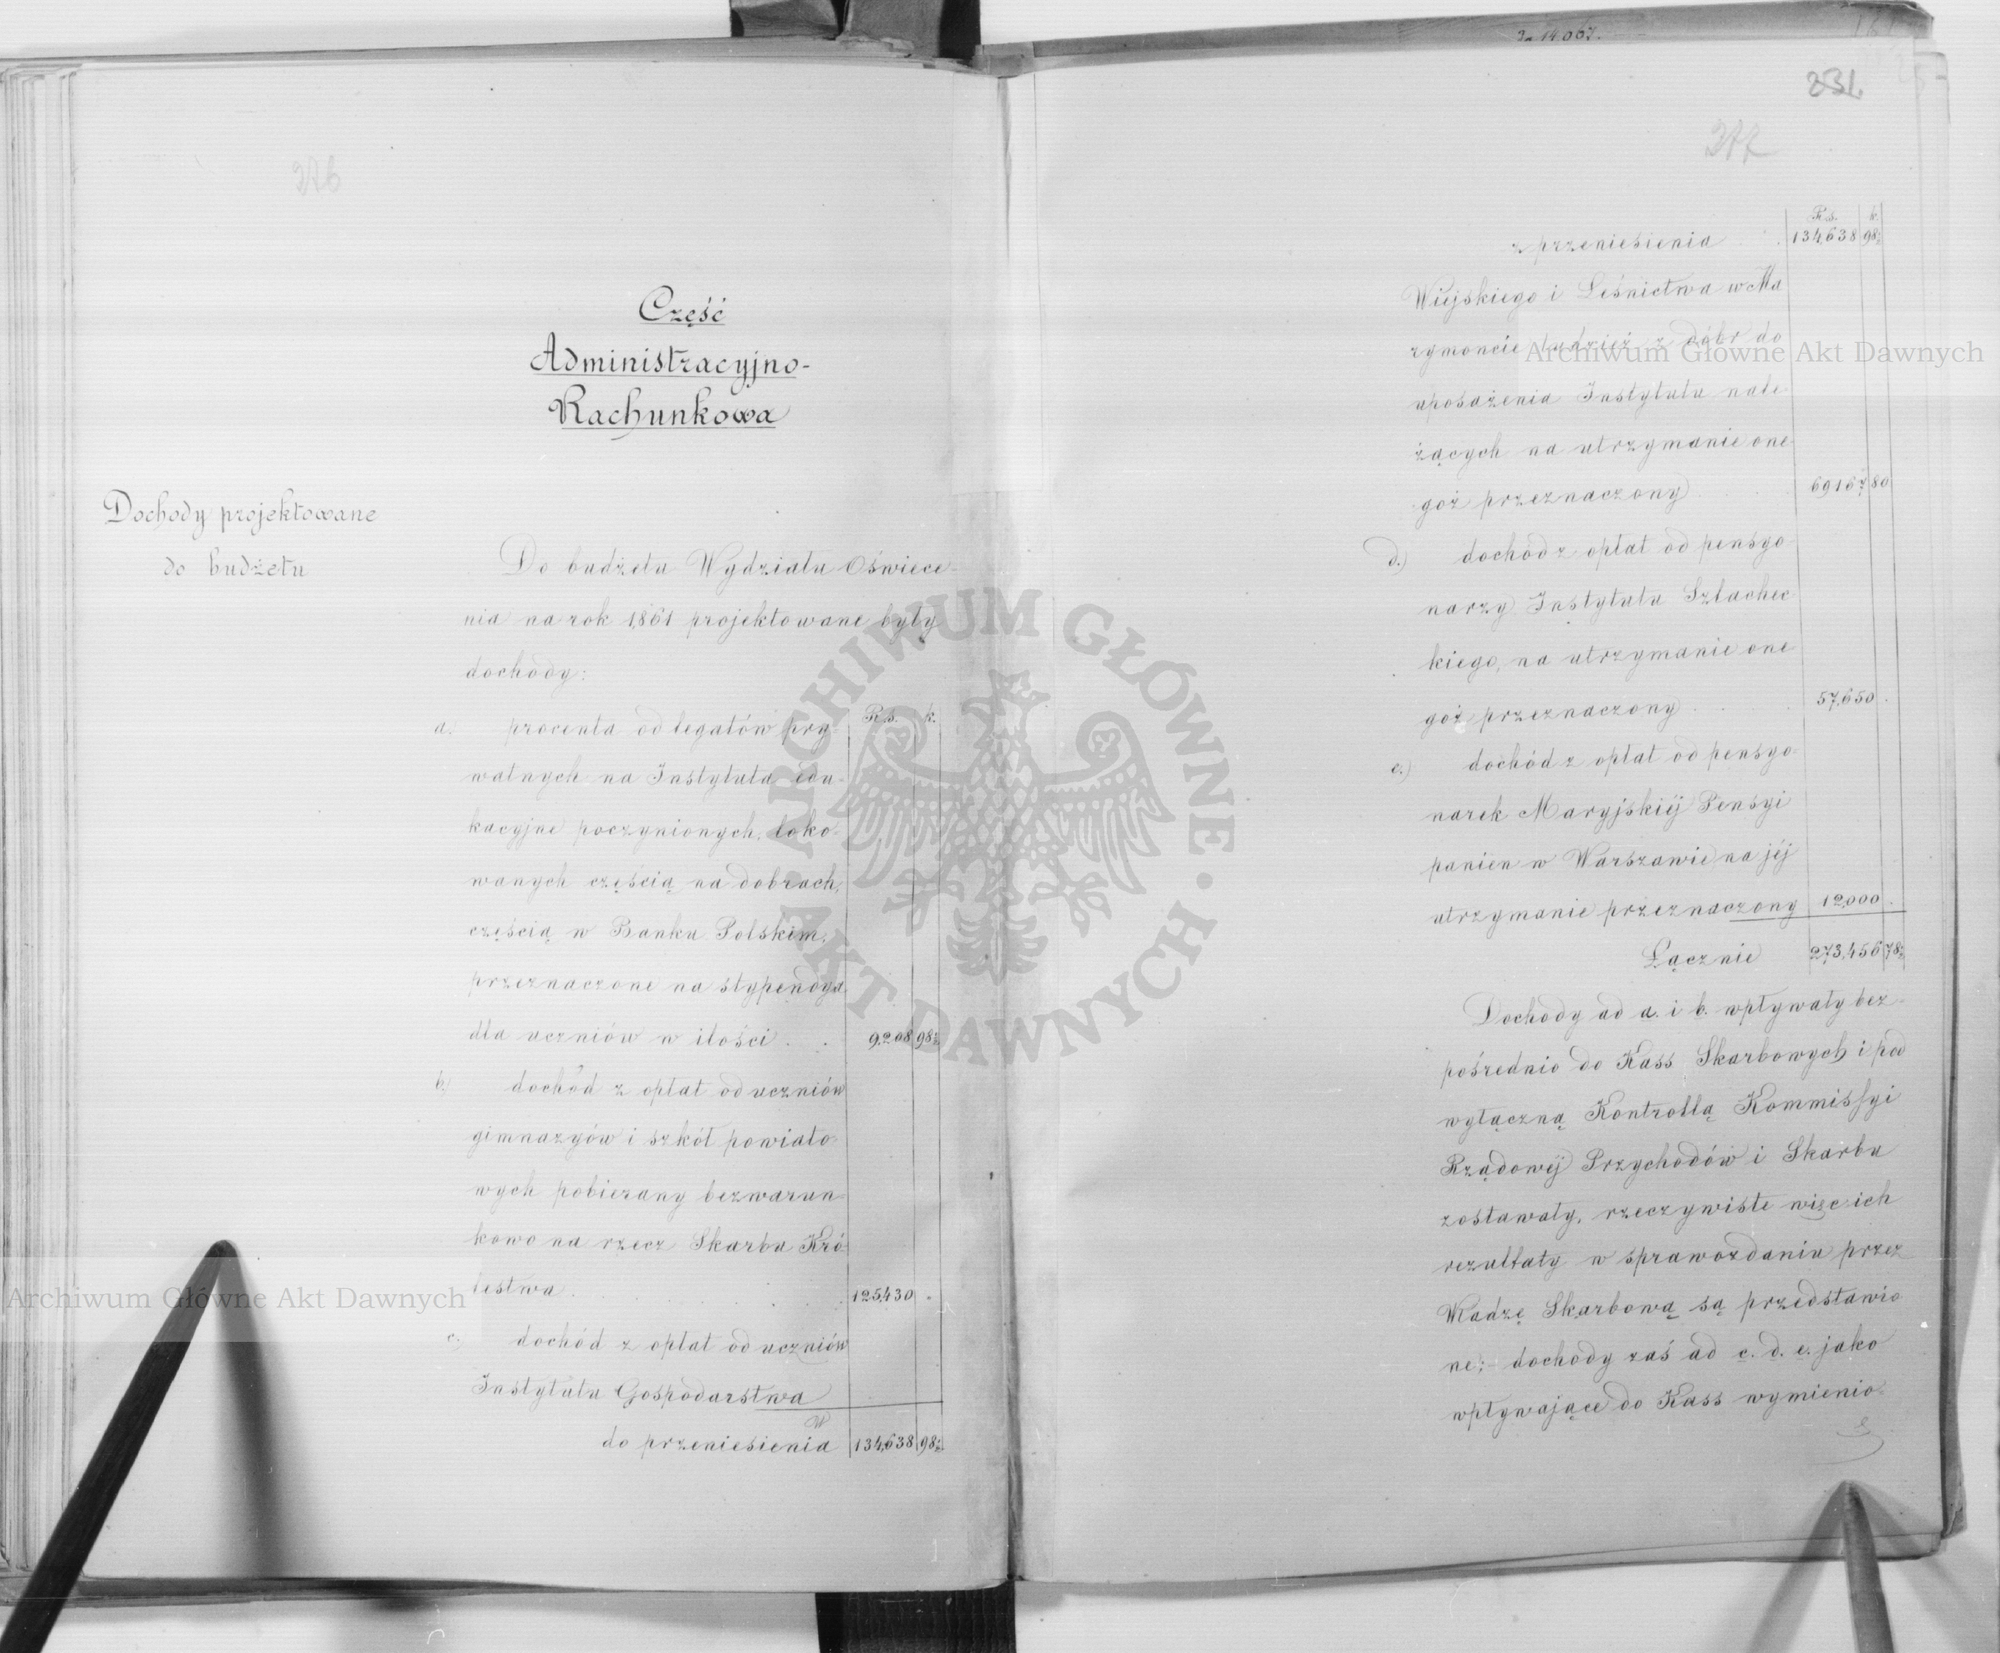 276
Część
Administracyjno-
Rachunkowa
Dochody projektowane
do budżetu
Do budżetu Wydziału Oświece-
nia na rok 1861 projektowane były
dochody:
Rs. k.
a.) procenta od legatów pry-
watnych na Instytuta edu-
kacyjne poczynionych, loko-
wanych częścią na dobrach,
częścią w Banku Polskim,
przeznaczone na stypendya
dla uczniów w ilości . . 9,208 98½
b.) dochód z opłat od uczniów
gimnazyów i szkół powiato-
wych pobierany bezwarun-
kowo na rzecz Skarbu Kró-
lestwa . . . 125,430 .
c. dochód z opłat od uczniów
Instytutu Gospodarstwa
W
do przeniesienia 134,638 98½
231.
277
Rs. k.
z przeniesienia 134,638 98½
Wiejskiego i Leśnictwa w Ma
rymoncie tudzież z dóbr do
uposażenia Instytutu nale-
żących na utrzymanie one-
goż przeznaczony . . . 69167 80
d.) dochód z opłat od pensyo-
narzy Instytutu Szlachec
kiego, na utrzymanie one
goż przeznaczony . . . 57,650 .
e.) dochód z opłat od pensyo-
narek Maryjskiéj Pensyi
panien w Warszawie na jéj
utrzymanie przeznaczony 12,000 .
Łącznie 273,456 78½
Dochody ad a. i b. wpływały bez-
pośrednio do Kass Skarbowych i pod
wyłączną Kontrollą Kommissyi
Rządowéj Przychodów i Skarbu
zostawały, rzeczywiste więc ich
rezultaty w sprawozdaniu przez
Władzę Skarbową są przedstawio
ne; dochody zaś ad c. d. e. jako
wpływające do Kass wymienio-
Archiwum Główne Akt Dawnych
Archiwum Główne Akt Dawnych
ARCHIWUM GŁÓWNE · AKT DAWNYCH ·